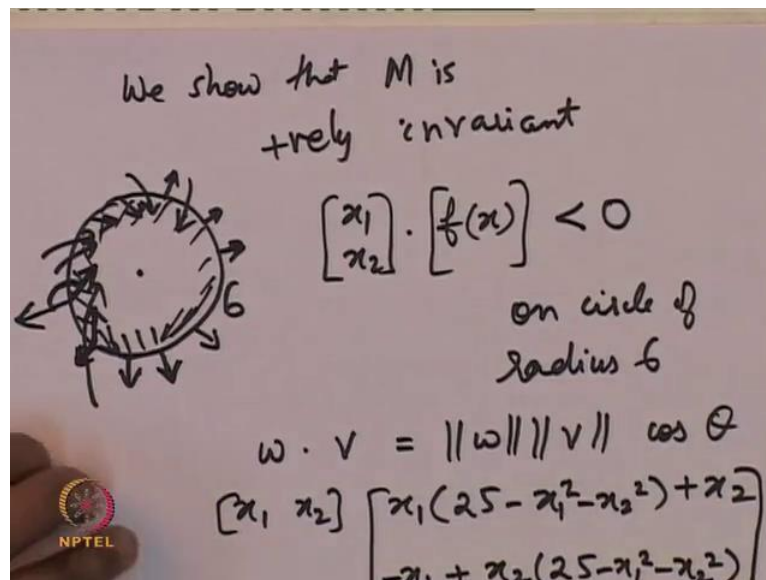 We show that M is
+vely invariant
[x₁ x₂] · [f(x)] < 0
6
on circle of
radius 6
w · v = ||w|| ||v|| cos θ
[x₁ x₂] [x₁(25 - x₁² - x₂²) + x₂
-x₁ + x₂(25 - x₁² - x₂²)
NPTEL